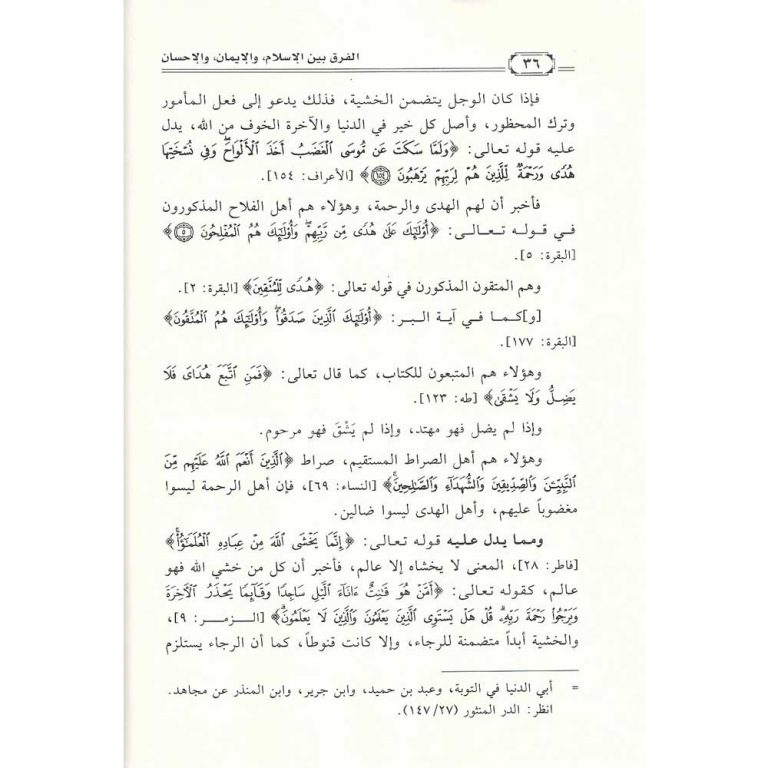 ٣٦
الفرق بين الإسلام، والإيمان، والإحسان
فإذا كان الوجل يتضمن الخشية، فذلك يدعو إلى فعل المأمور
وترك المحظور، وأصل كل خير في الدنيا والآخرة الخوف من الله، يدل
عليه قوله تعالى: ﴿وَلَمَّا سَكَتَ عَن مُّوسَى ٱلْغَضَبُ أَخَذَ ٱلْأَلْوَاحَ ۖ وَفِى نُسْخَتِهَا
هُدًى وَرَحْمَةٌ لِّلَّذِينَ هُمْ لِرَبِّهِمْ يَرْهَبُونَ ١٥٤﴾ [الأعراف: ١٥٤].
فأخبر أن لهم الهدى والرحمة، وهؤلاء هم أهل الفلاح المذكورون
في قوله تعالى: ﴿أُو۟لَـٰٓئِكَ عَلَىٰ هُدًى مِّن رَّبِّهِمْ ۖ وَأُو۟لَـٰٓئِكَ هُمُ ٱلْمُفْلِحُونَ ٥﴾
[البقرة: ٥].
وهم المتقون المذكورن في قوله تعالى: ﴿هُدًى لِّلْمُتَّقِينَ﴾ [البقرة: ٢].
[و]كما في آية البر: ﴿أُو۟لَـٰٓئِكَ ٱلَّذِينَ صَدَقُوا۟ ۖ وَأُو۟لَـٰٓئِكَ هُمُ ٱلْمُتَّقُونَ﴾
[البقرة: ١٧٧].
وهؤلاء هم المتبعون للكتاب، كما قال تعالى: ﴿فَمَنِ ٱتَّبَعَ هُدَاىَ فَلَا
يَضِلُّ وَلَا يَشْقَىٰ﴾ [طه: ١٢٣].
وإذا لم يضل فهو مهتد، وإذا لم يَشْقَ فهو مرحوم.
وهؤلاء هم أهل الصراط المستقيم، صراط ﴿ٱلَّذِينَ أَنْعَمَ ٱللَّهُ عَلَيْهِم مِّنَ
ٱلنَّبِيِّـۧنَ وَٱلصِّدِّيقِينَ وَٱلشُّهَدَآءِ وَٱلصَّـٰلِحِينَ ۚ﴾ [النساء: ٦٩]، فإن أهل الرحمة ليسوا
مغضوباً عليهم، وأهل الهدى ليسوا ضالين.
ومما يدل عليه قوله تعالى: ﴿إِنَّمَا يَخْشَى ٱللَّهَ مِنْ عِبَادِهِ ٱلْعُلَمَـٰٓؤُا۟ ۗ﴾
[فاطر: ٢٨]، المعنى لا يخشاه إلا عالم، فأخبر أن كل من خشي الله فهو
عالم، كقوله تعالى: ﴿أَمَّنْ هُوَ قَـٰنِتٌ ءَانَآءَ ٱلَّيْلِ سَاجِدًا وَقَآئِمًا يَحْذَرُ ٱلْـَٔاخِرَةَ
وَيَرْجُوا۟ رَحْمَةَ رَبِّهِۦ ۗ قُلْ هَلْ يَسْتَوِى ٱلَّذِينَ يَعْلَمُونَ وَٱلَّذِينَ لَا يَعْلَمُونَ ۗ﴾ [الزمر: ٩]،
والخشية أبداً متضمنة للرجاء، وإلا كانت قنوطاً، كما أن الرجاء يستلزم
= أبي الدنيا في التوبة، وعبد بن حميد، وابن جرير، وابن المنذر عن مجاهد.
انظر: الدر المنثور (١٤٧/٢٧).